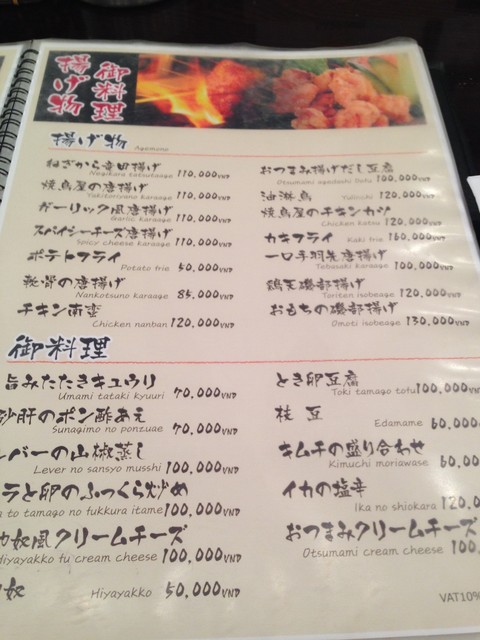 御料理
揚げ物
揚げ物 Agemono
ねぎから竜田揚げ
Negikara tatsutaage 110.000VND
焼鳥屋の唐揚げ
Yakitoriyano karaage 110.000VND
ガーリック風唐揚げ
Garlic karaage 110.000VND
スパイシーチーズ唐揚げ
Spicy cheese karaage 110.000VND
ポテトフライ
Potato frie 50.000VND
軟骨の唐揚げ
Nankotsuno karaage 85.000VND
チキン南蛮
Chicken nanban 120.000VND
おつまみ揚げだし豆腐
Otsumami agedashi Tofu 100.000VND
油淋鳥 Yurinchi 120.000VND
焼鳥屋のチキンカツ
Chicken katsu 120.000VND
カキフライ Kaki frie 160.000VND
一口手羽先唐揚げ
Tebasaki karaage 100.000VND
鶏天磯部揚げ
Toriten isobeage 120.000VND
おもちの磯部揚げ
Omoti isobeage 130.000VND
御料理
旨みたたきキュウリ
Umami tataki kyuuri 70.000VND
砂肝のポン酢あえ
Sunagimo no ponzuae 70.000VND
レバーの山椒蒸し
Lever no sansyo musshi 100.000VND
ラと卵のふっくら炒め
a to tamago no fukkura itame 100.000VND
奴風クリームチーズ
Hiyayakko fu cream cheese 100.000VND
奴 Hiyayakko 50.000VND
とき卵豆腐
Toki tamago tofu 100.000VND
枝豆
Edamame 60.000
キムチの盛り合わせ
Kimuchi moriawase 60.00
イカの塩辛
Ika no shiokara 120.0
おつまみクリームチーズ
Otsumami cream cheese 100.
VAT10%